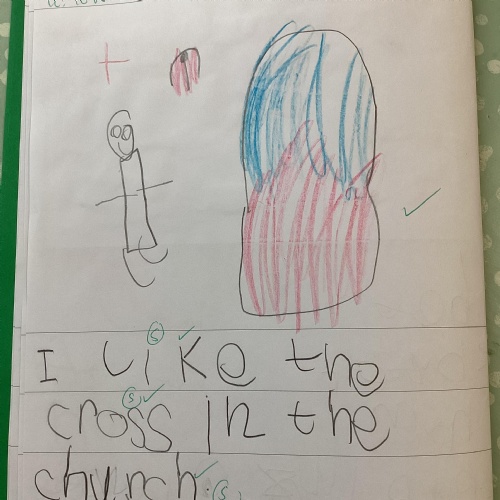 S
I like the
S
cross in the
church.
S